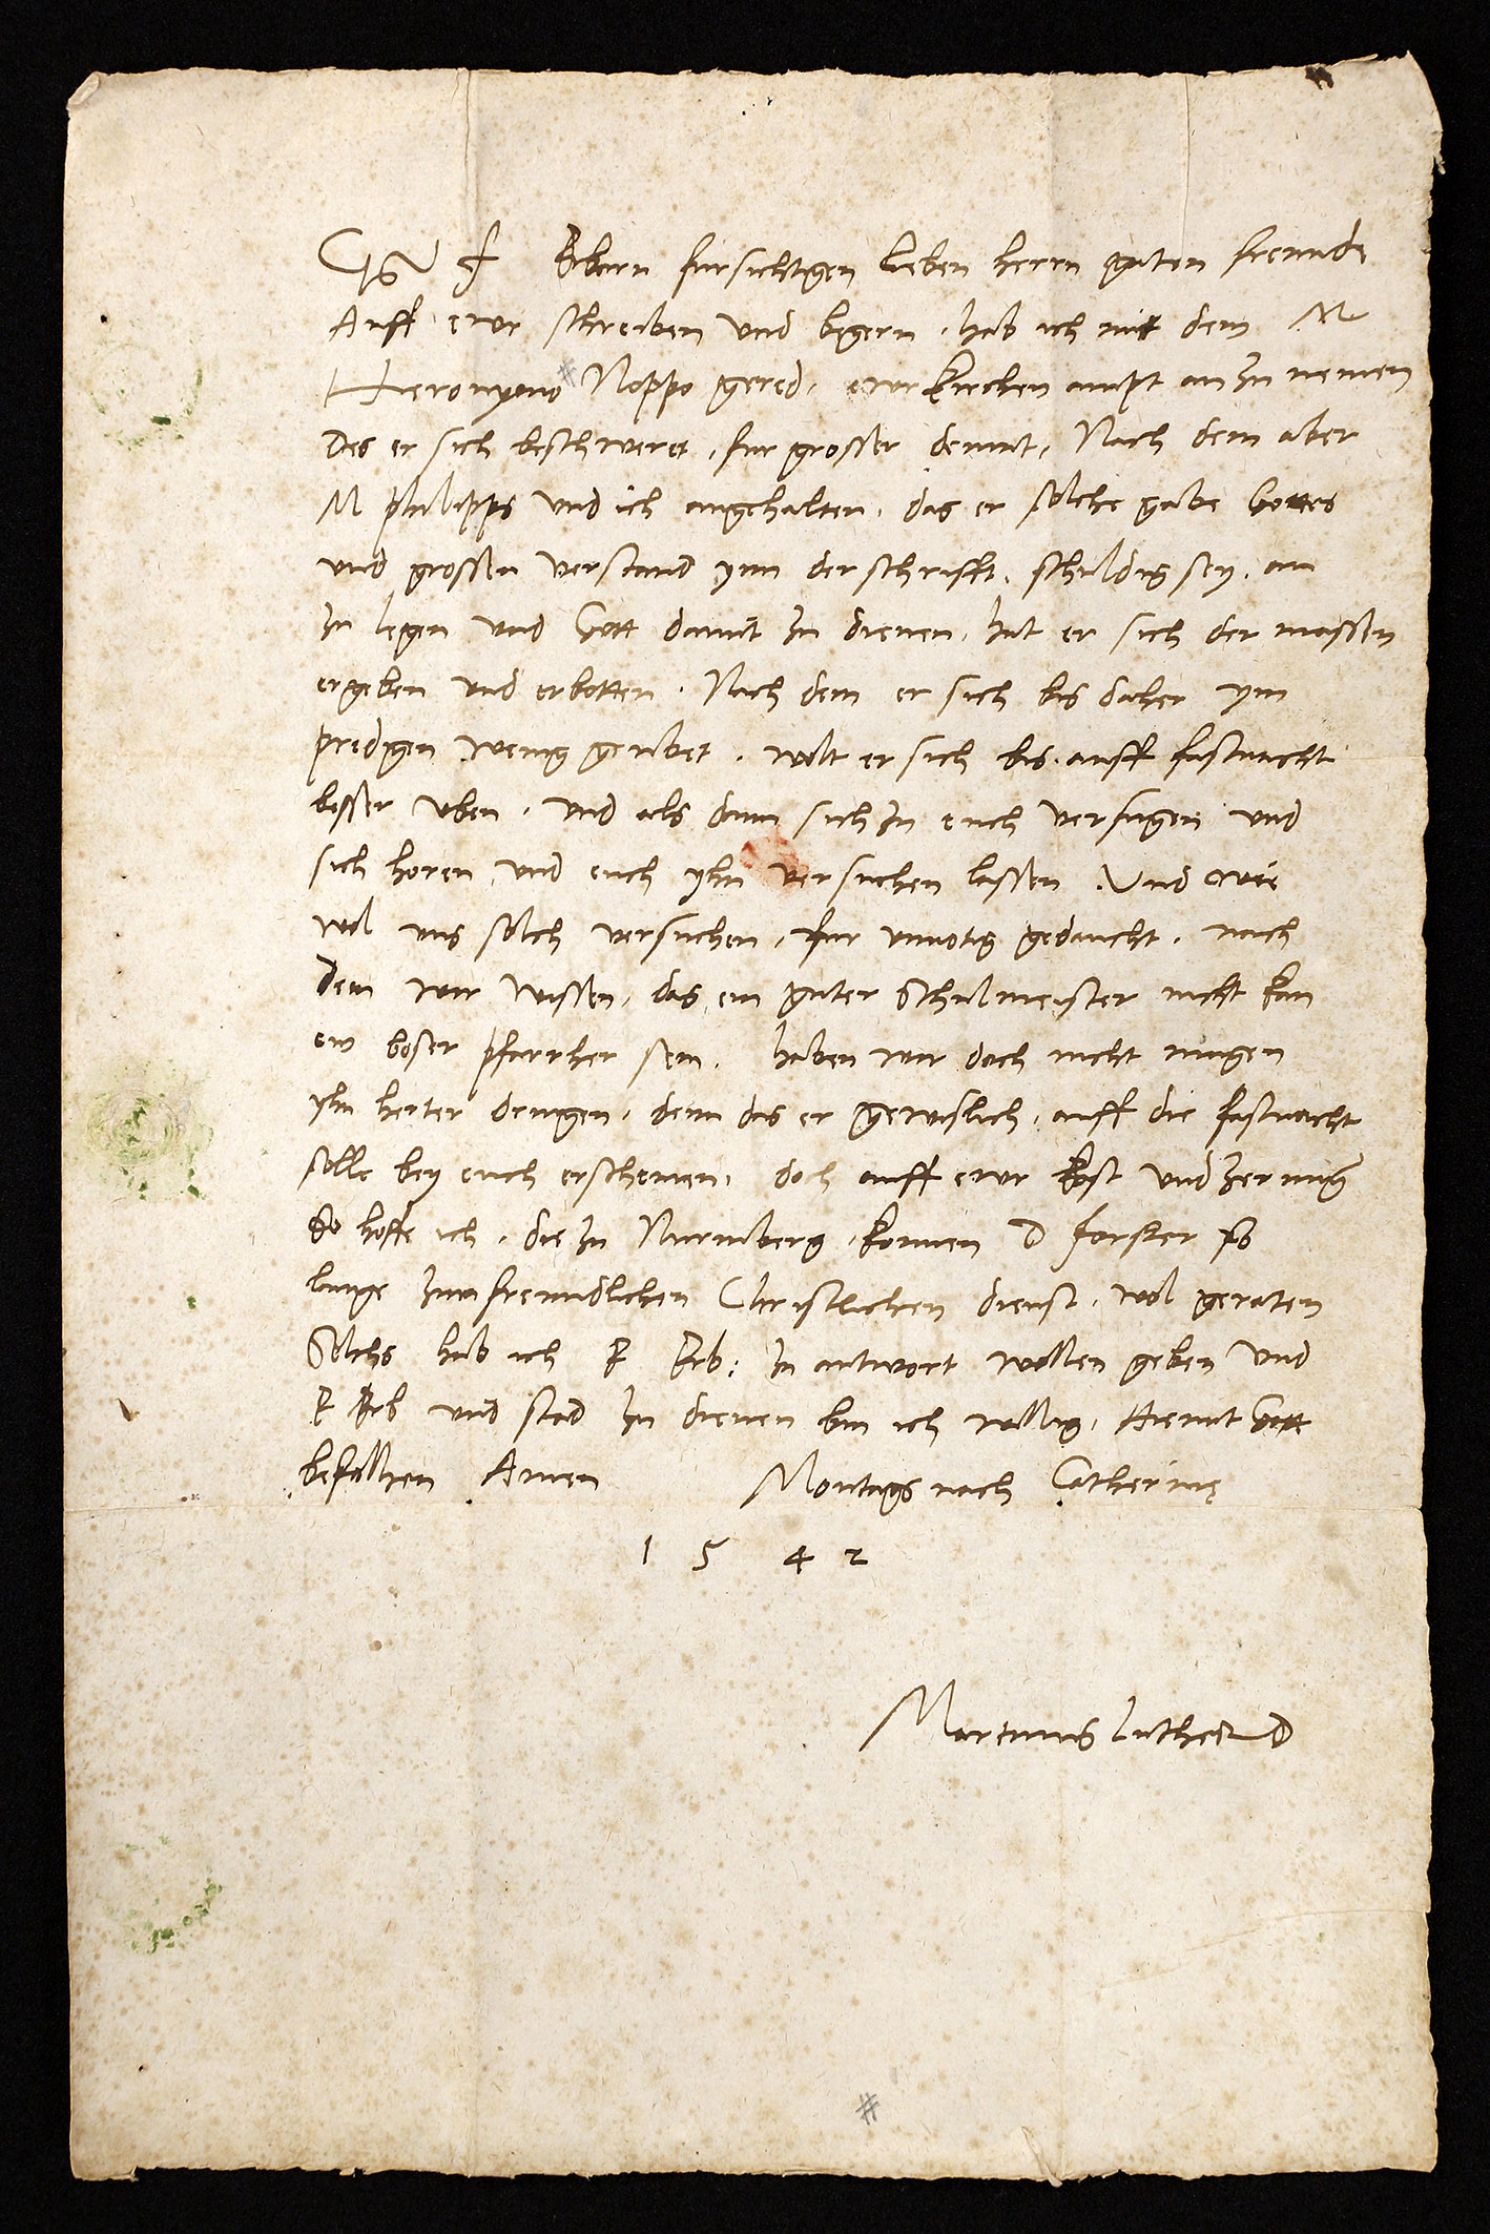 G u f Erbarn fursichtigen lieben herrn guten freunde
Auff ewr schreiben und bgern, hab ich mit dem M
Hieronymo Noppo gered, ewr kirchen ampt an zu nemen
Des er sich beschweret, fur grosser demut, Nach dem aber
M Philipps und ich angehalten, das er solche gabe Gottes
und grossen verstand ynn der schrifft, schuldig sey, an
zu legen und Gott damit zu dienen, hat er sich der massen
ergeben und erbotten. Nach dem er sich bis daher ym
predigen wenig geubet, wolt er sich bis auff fastnacht
besser uben, und als dann sich zu euch verfugen und
sich horen und euch yhn versuchen lassen. Und wie
wol uns solch versuchen, fur unnotig gedaucht, nach
dem wir wissen, das ein guter Schulmeister nicht kan
ein boser pfarrher sein, haben wir doch nicht mugen
yhn herter dringen, denn das er gewislich, auff die fastnacht
solle bey euch erscheinen, doch auff ewr kost und zerung
So hoffe ich, die zu Nurmberg, konnen D Forster so
lange zum freundlichen Christlichen dienst, wol geraten
Solchs hab ich E Erb: zu antwort wollen geben Und
E Erb und stad zu dienen bin ich willig, Hiemit Gott
befolhen Amen Montags nach Catherinę
1 5 4 2
Martinus Luther D
#
#